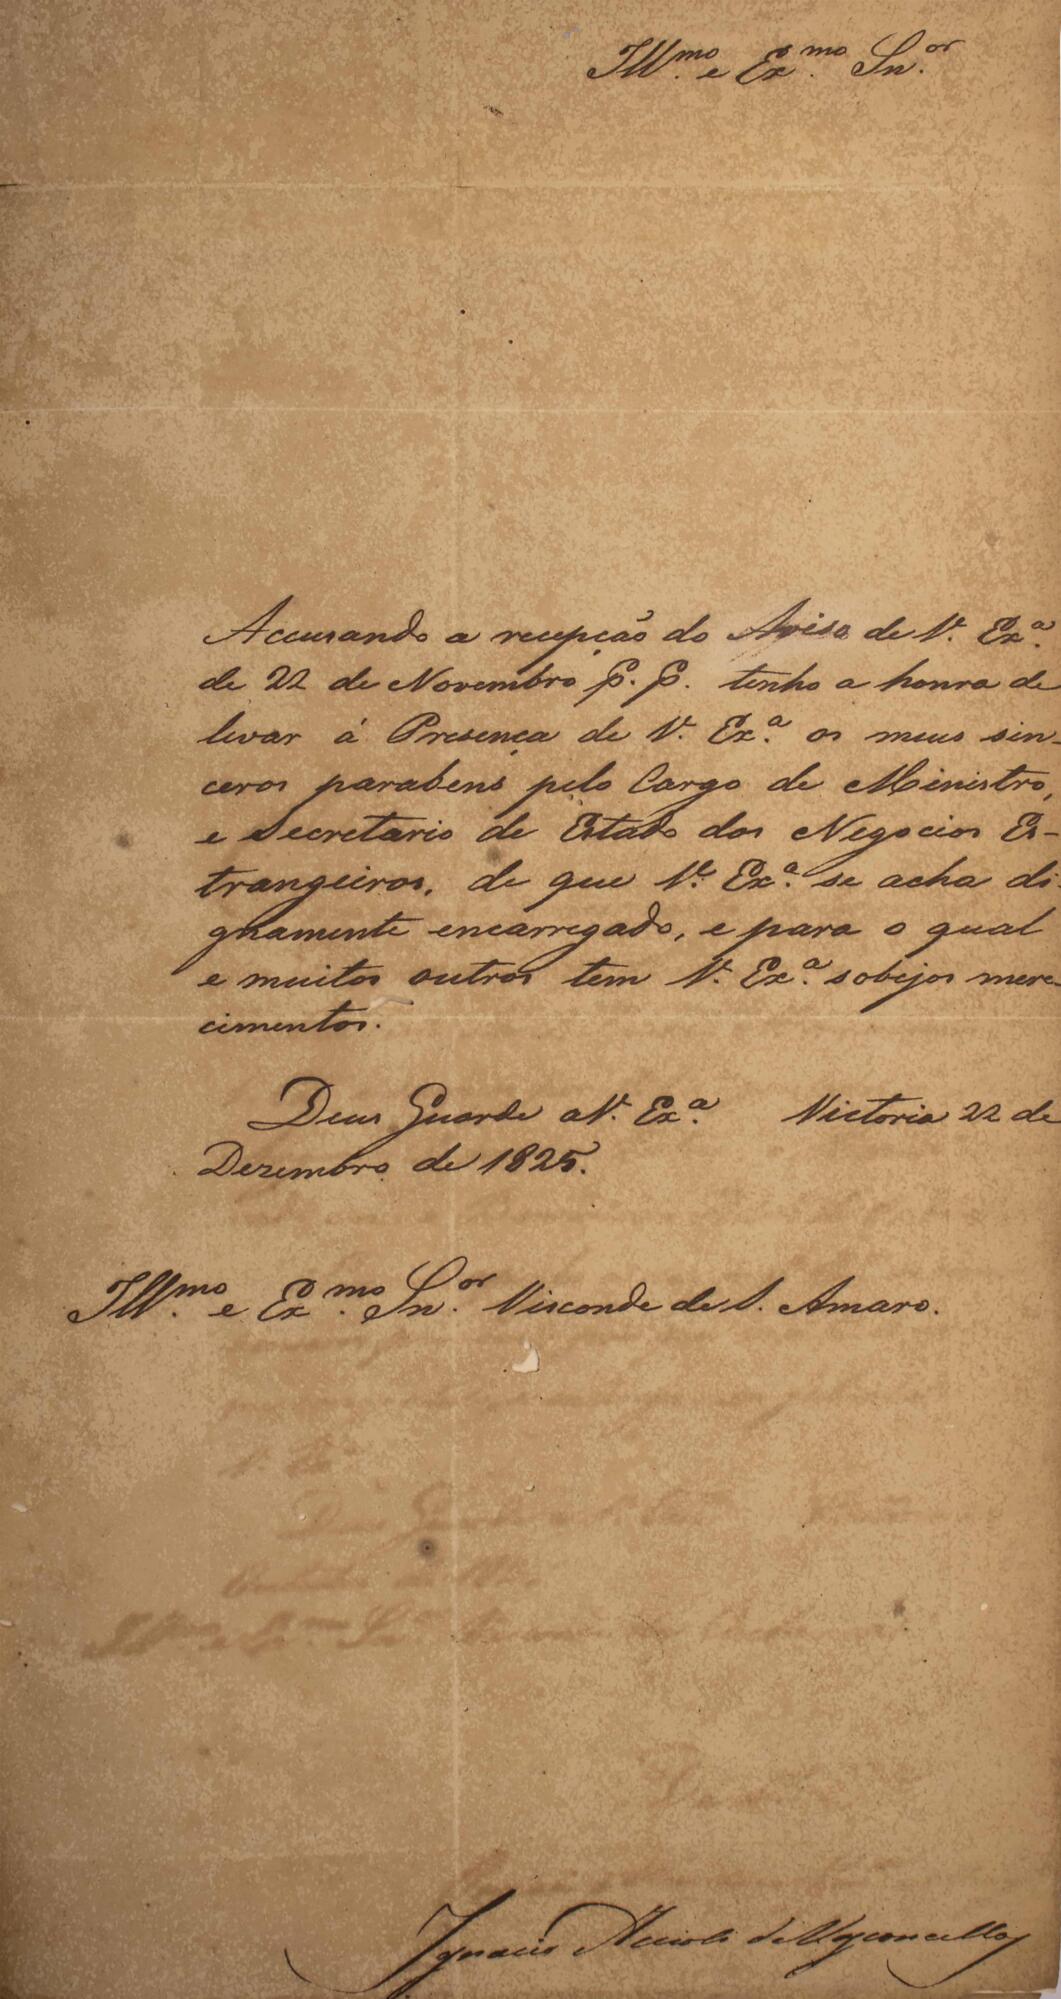 Ill.mo e Ex.mo Sn.or
Accusando a recepção do Aviso de V. Ex.a
de 22 de Novembro p. p. tenho a honra de
levar á Presença de V. Ex.a os meus sin-
ceros parabens pelo Cargo de Ministro,
e Secretario de Estado dos Negocios Es-
trangeiros, de que V. Ex.a se acha di-
gnamente encarregado, e para o qual
e muitos outros tem V. Ex.a sobejos mere-
cimentos.
Deus Guarde a V. Ex.a Victoria 22 de
Dezembro de 1825.
Ill.mo e Ex.mo Sn.or Visconde de S. Amaro.
Ignacio Accioli de Vasconcellos